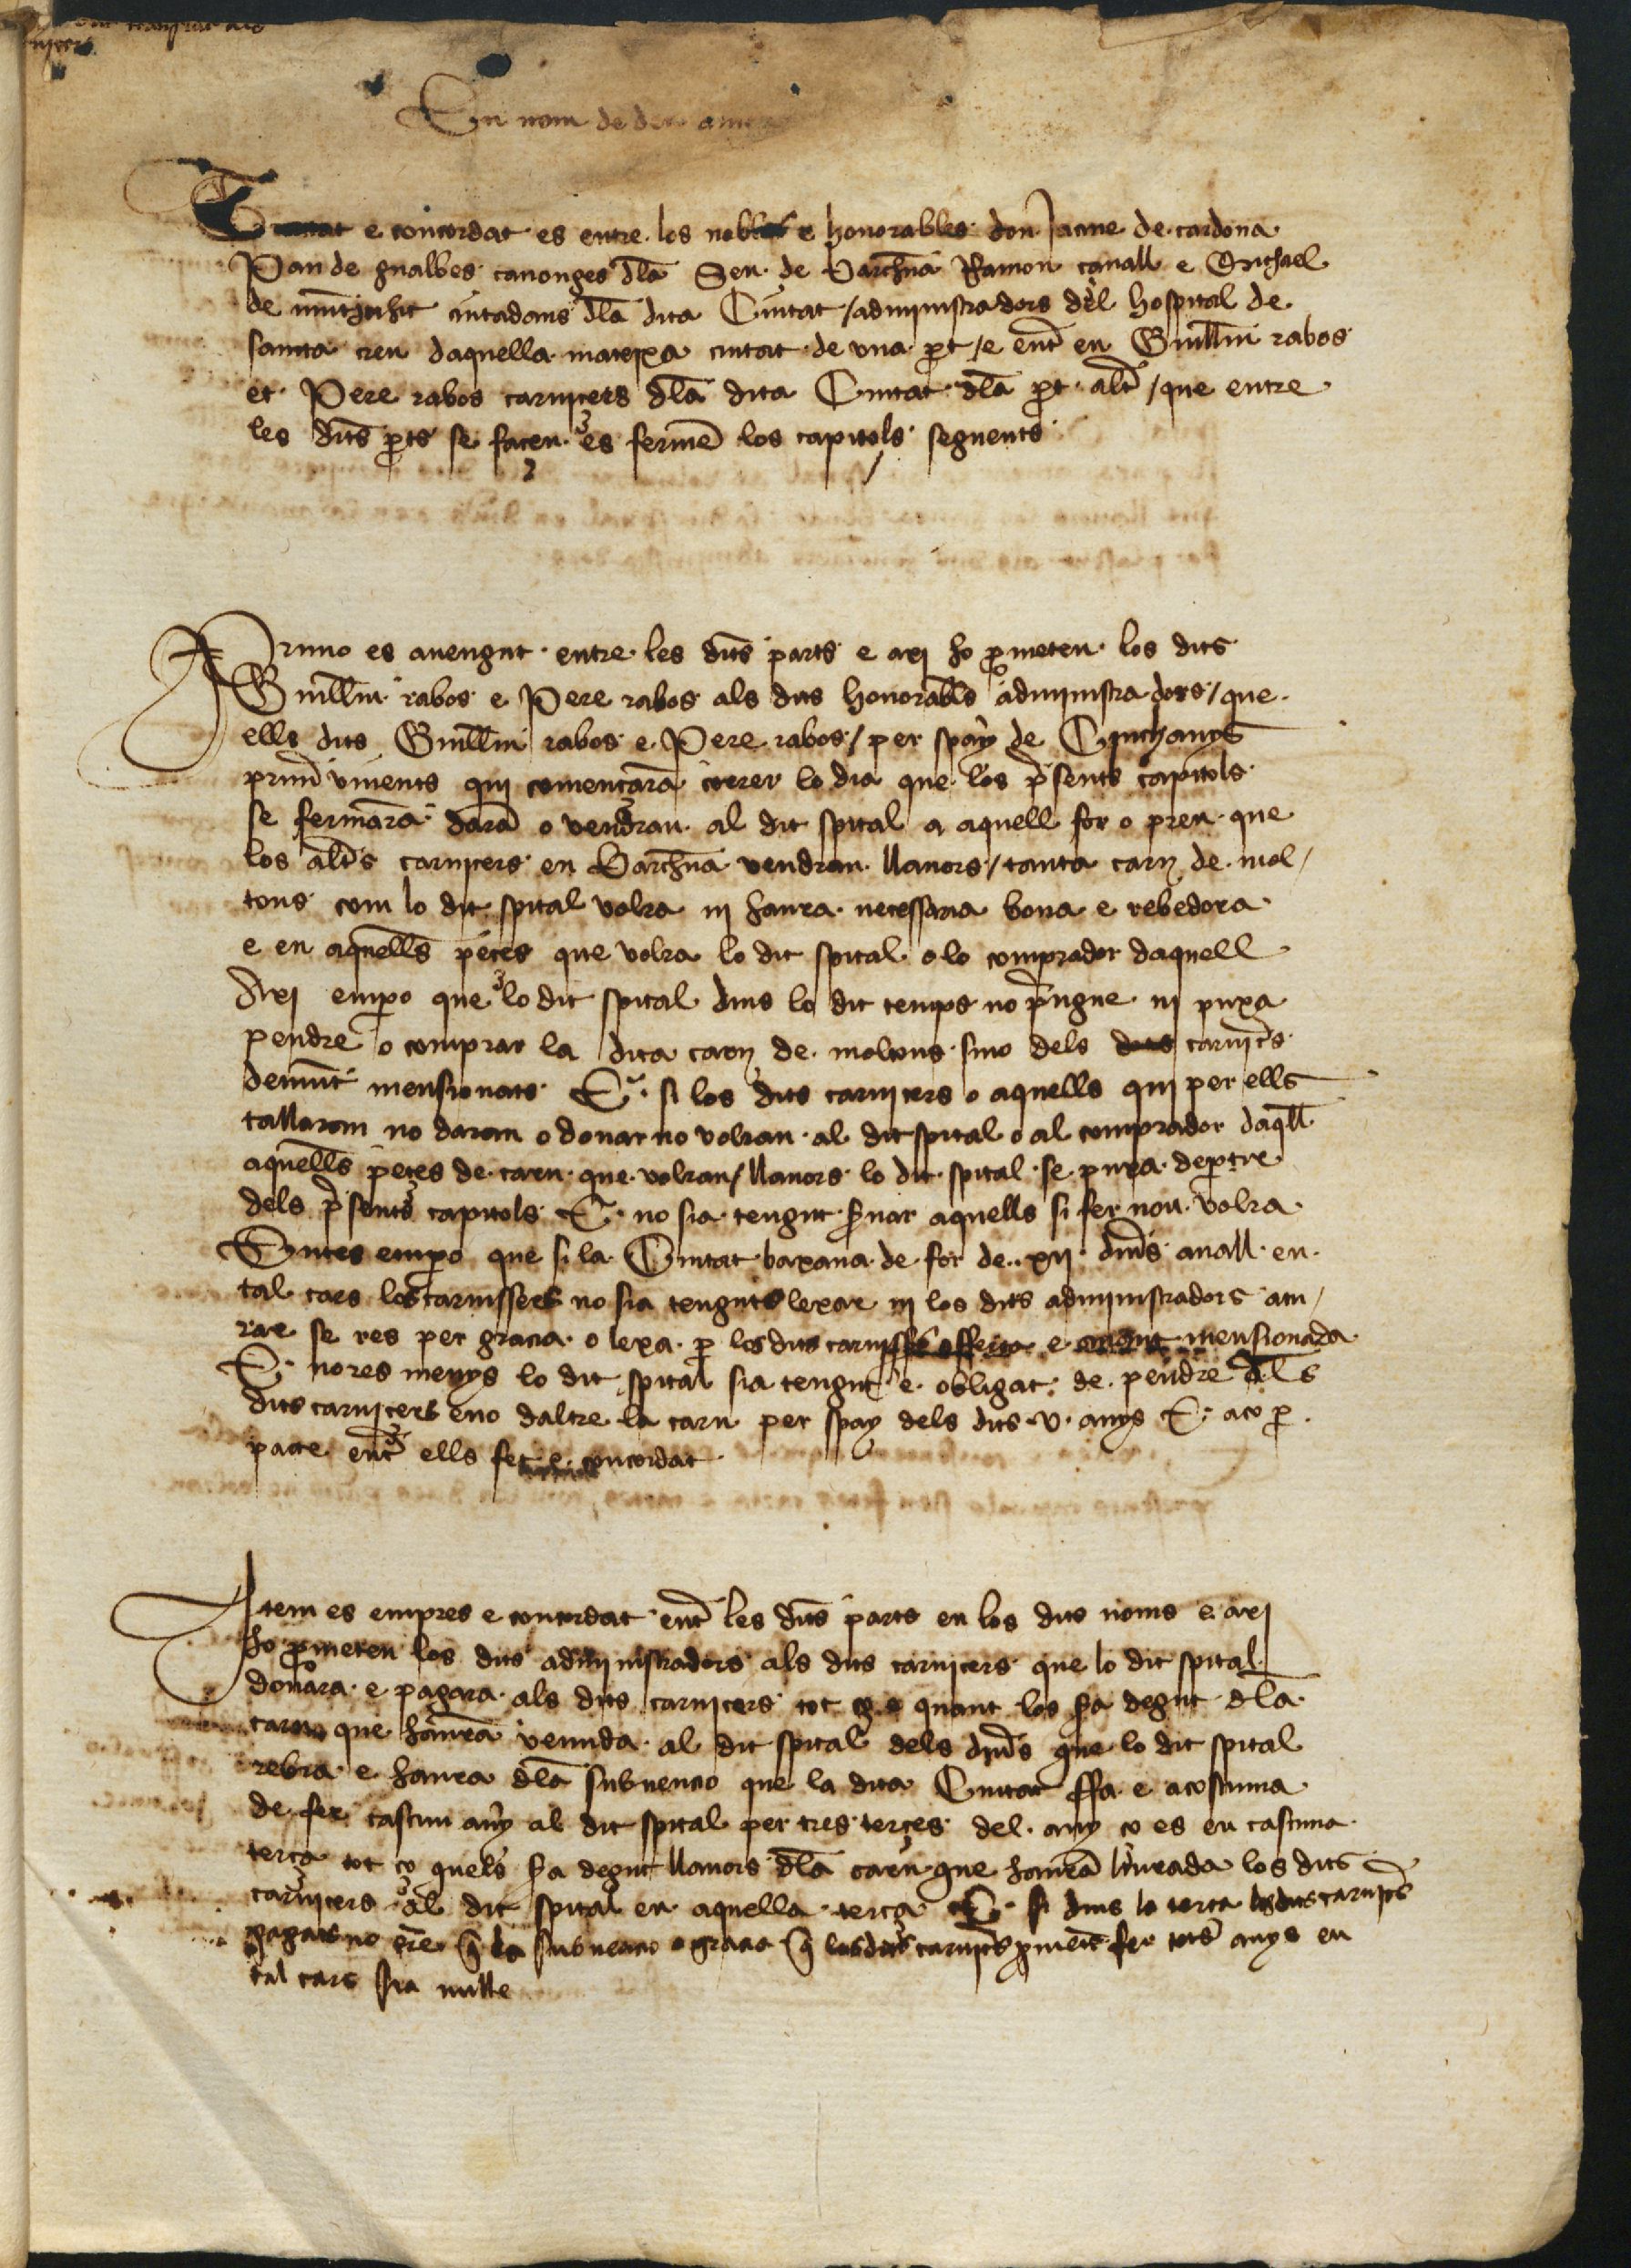 En nom de deu amen
Tractat e concordat es entre los nobles e honorables don Jacme de cardona
Pau de gualbes canonges dla Seu de Barchna Ramon cauall e Michael
de muntjuhit ciutadans dla dita Ciutat / administradors del hospital de
sancta creu daquella mateixa ciutat de vna part / e entre en Guillm rabos
et Pere rabos carnicers dla dita Ciutat dla prt altr / que entre
les dits prts se facen es fermen los capitols seguents
Primo es auengut entre les dits parts e axi ho prometen los dits
Guillm rabos e Pere rabos als dits honorabls administradors / que
ells dits Guillm rabos e Pere rabos / per spay de Cinch anys
primrs vinents qui comencara correr lo dia que los presents capitols
se fermara dara o vendran al dit spital a aquell for o preu que
los altrs carnicers en Barchna vendran llauors / tanta carn de mol /
tons com lo dit spital volra ni haura necessaria bona e rebedora
e en aquells peces que volra lo dit spital o lo comprador daquell
Axi empo que lo dit spital dins lo dit temps no prengue ni puxa
pendre o comprar la dita carn de moltons sino dels carnicrs
demunt mensionats E si los dits carnicers o aquells qui per ells
tallaran no daran o donar no volran al dit spital o al comprador daqll
aquells peces de carn que volran / llauors lo dit spital se puxa departre
dels presents capitols E no sia tengut seruar aquells si fer non volra
Entes empo que si la Ciutat baxaua de for de xii dins auall en
tal cars los carnissers no sia tenguts lexar ni los dits administradors atu /
rar se res per gracia o lexa per los dits carnissrs offerta e auant mensionada
E no res menys lo dit spital sia tengut e obligat de pendre dels
dits carnicers e no daltre la carn per spay dels dits v anys E aco per
pacte entre ells fet e concordat
Item es empres e concordat entr les dits parts en los dits noms e axi
ho prometen los dits administradors als dits carnicers que lo dit spital
donara e pagara als dits carnicers tot ço e quant los sra degut dla
carn que hauran venuda al dit spital dels dinrs que lo dit spital
rebra e haura dla subuencio que la dita Ciutat ffa e acostuma
de fer cascun any al dit spital per tres terçes del any ço es en cascuna
terça tot ço quels sra degut llauors dla carn que hauran liurada los dits
carnicers al dit spital en aquella terça E si dins la terca los dits carnicrs
pagats no eren q la subuencio o gracia q los dits carnicrs prometn fer tots anys en
tal cars sia nulle